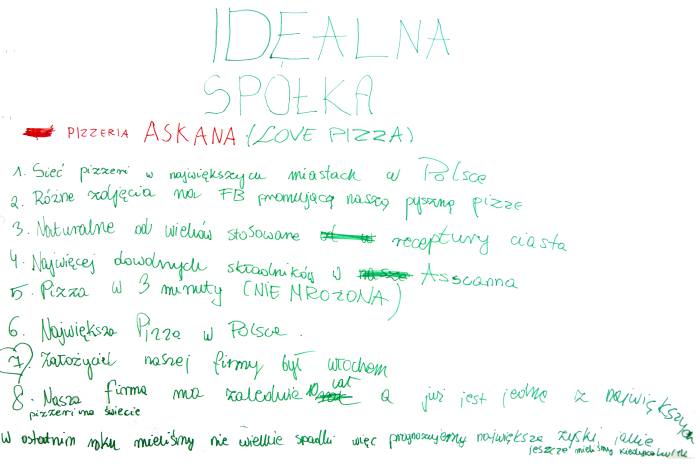 IDEALNA
SPÓŁKA
PIZZERIA ASKANA (LOVE PIZZA)
1. Sieć pizzeri w największych miastach w Polsce
2. Różne zdjęcia na FB promującą naszą pyszną pizze
3. Naturalne od wieków stosowane receptury ciasta
4. Najwięcej dowolnych składników w Asscanna
5. Pizza w 3 minuty (NIE MROŻONA)
6. Największa Pizza w Polsce.
7. Założyciel naszej firmy był włochem
8. Nasza firma ma zaledwie 10 lat a już jest jedną z największych
pizzeri na świecie
w ostatnim roku mieliśmy nie wielkie spadki więc prognozujemy największe zyski jakie
jeszcze mieliśmy kiedykolwiek